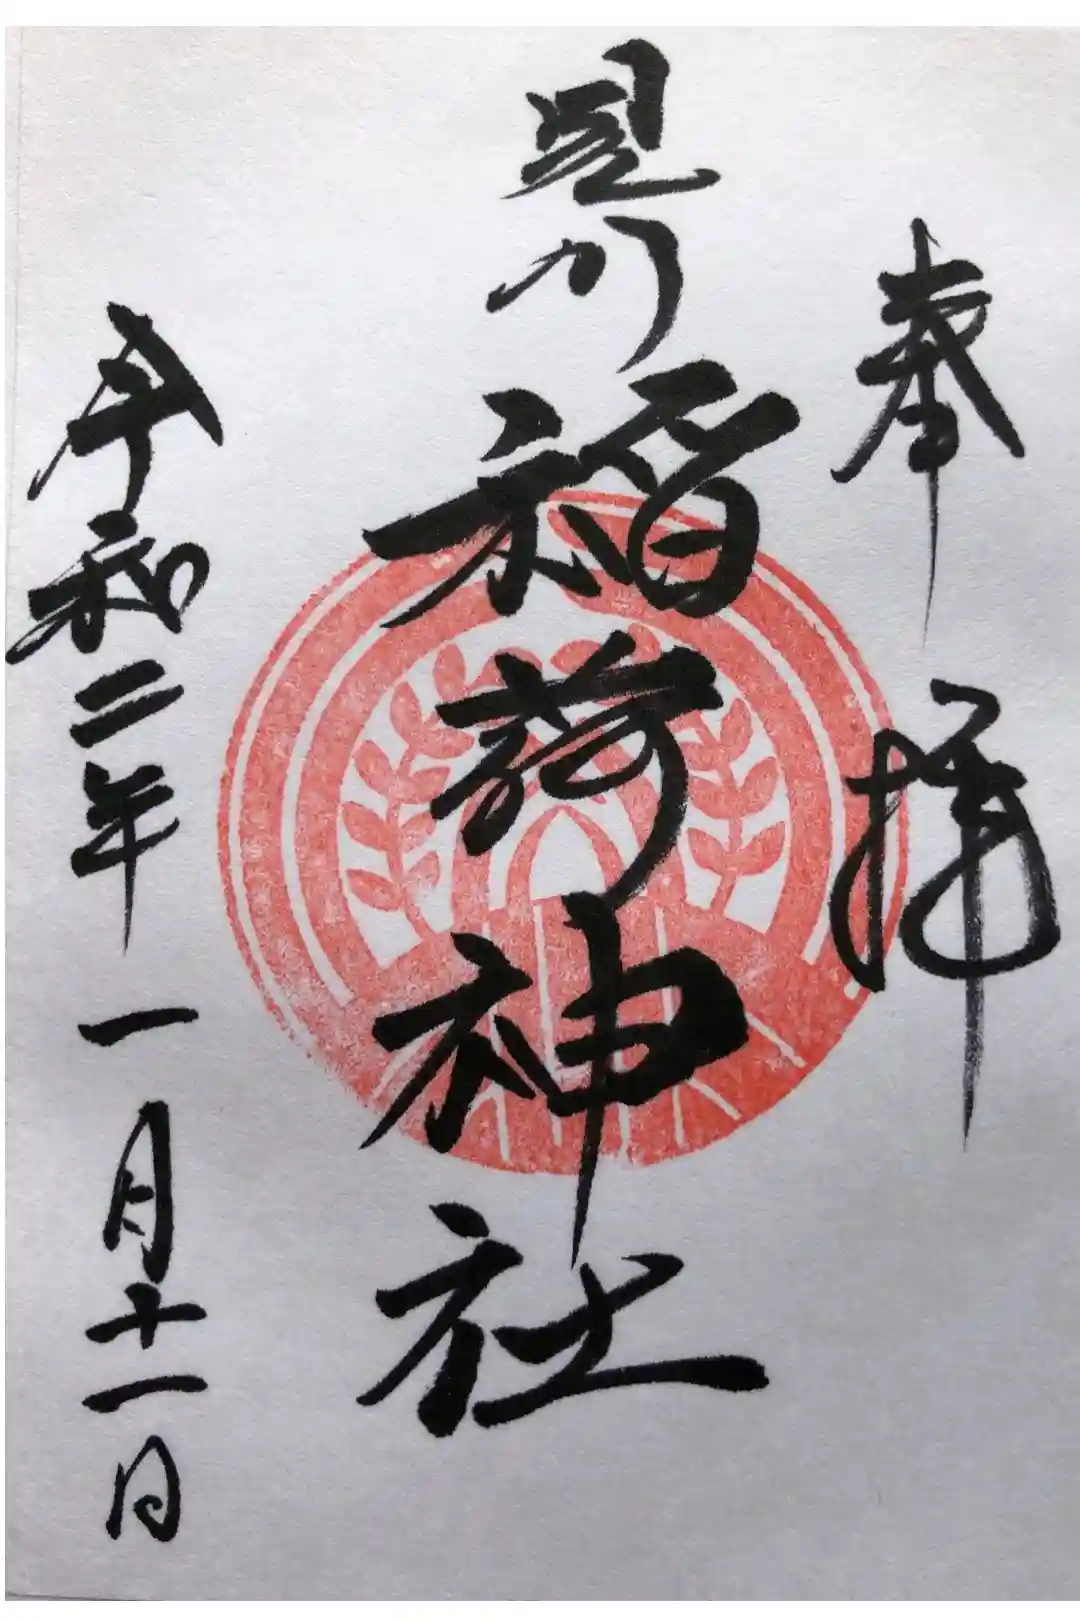 奉拝
川稲荷神社
令和二年一月十一日